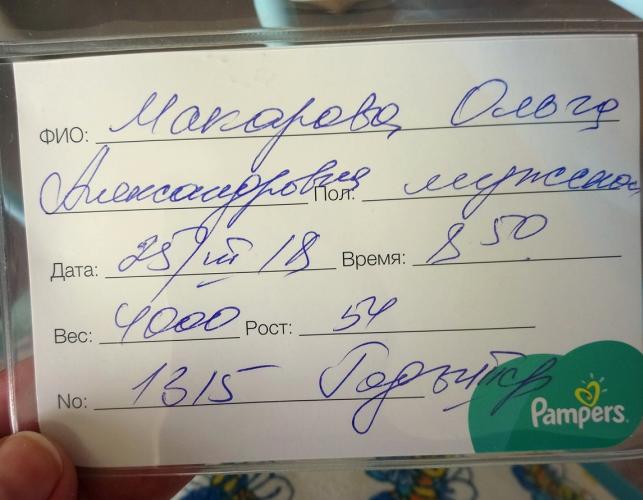 ФИО: Макарова Ольга
Александровна Пол: мужской
Дата: 25/III 18 Время: 8 50
Вес: 4000 Рост: 54
No: 1315
Pampers